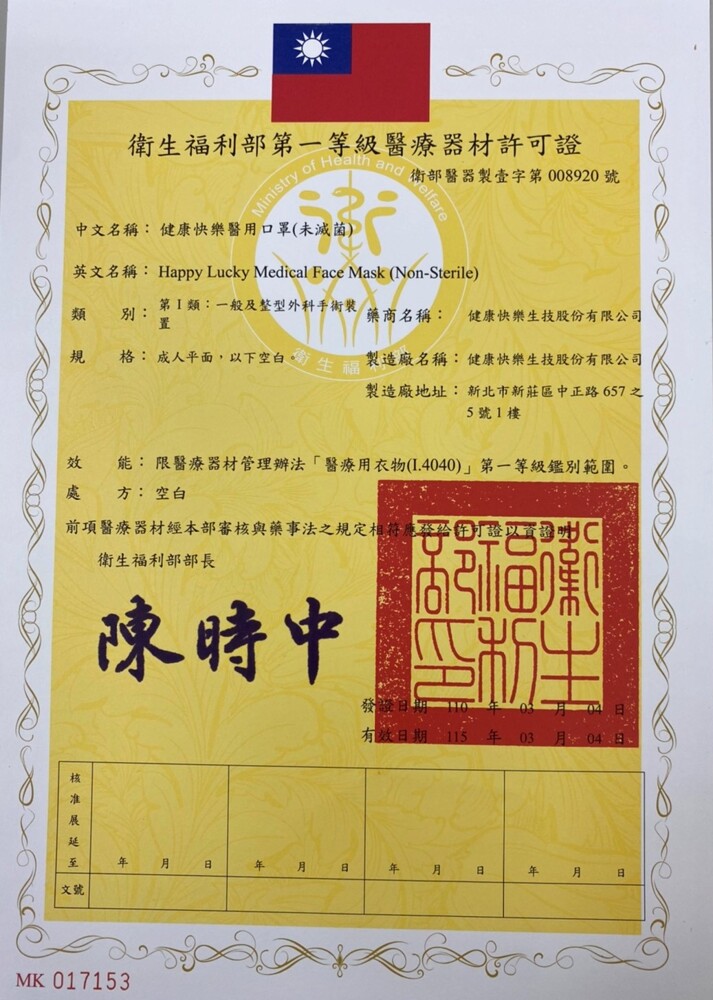 衛生福利部第一等級醫療器材許可證
衛部醫器製壹字第 008920 號
Ministry of Health and Welfare
中文名稱：健康快樂醫用口罩(未滅菌)
英文名稱：Happy Lucky Medical Face Mask (Non-Sterile)
類 別：第 I 類：一般及整型外科手術裝
置
藥商名稱：健康快樂生技股份有限公司
規 格：成人平面，以下空白。
衛生福利部
製造廠名稱：健康快樂生技股份有限公司
製造廠地址：新北市新莊區中正路 657 之
5 號 1 樓
效 能：限醫療器材管理辦法「醫療用衣物(I.4040)」第一等級鑑別範圍。
處 方：空白
前項醫療器材經本部審核與藥事法之規定相符應發給許可證以資證明
衛生福利部部長
陳時中
衛生福利部印
發證日期 110 年 03 月 04 日
有效日期 115 年 03 月 04 日
核准展延至
年 月 日
年 月 日
年 月 日
年 月 日
文號
MK 017153